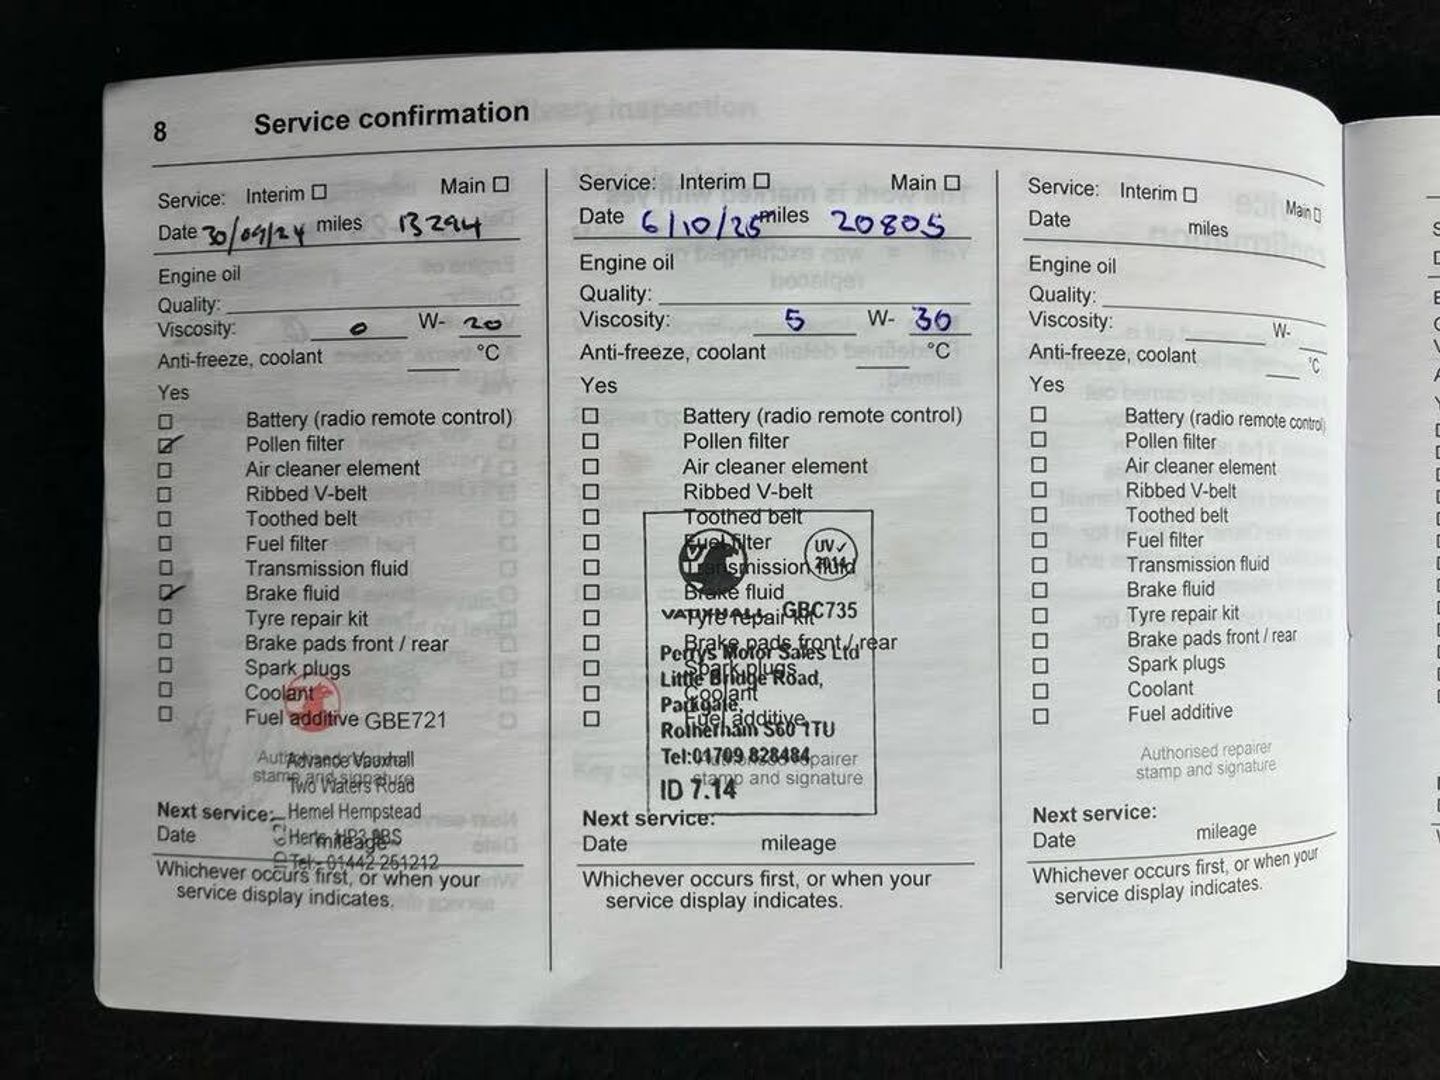 8 Service confirmation
Service: Interim ☐ Main ☐
Date 30/09/24 miles 13294
Engine oil
Quality:
Viscosity: 0 W- 20
Anti-freeze, coolant °C
Yes
☐ Battery (radio remote control)
☑ Pollen filter
☐ Air cleaner element
☐ Ribbed V-belt
☐ Toothed belt
☐ Fuel filter
☐ Transmission fluid
☑ Brake fluid
☐ Tyre repair kit
☐ Brake pads front / rear
☐ Spark plugs
☐ Coolant
☐ Fuel additive GBE721
Authorised repairer
stamp and signature
Advance Vauxhall
Two Waters Road
Hemel Hempstead
Herts HP3 9BS
Tel:- 01442 251212
Next service:
Date mileage
Whichever occurs first, or when your
service display indicates.
Service: Interim ☐ Main ☐
Date 6/10/25 miles 20805
Engine oil
Quality:
Viscosity: 5 W- 30
Anti-freeze, coolant °C
Yes
☐ Battery (radio remote control)
☐ Pollen filter
☐ Air cleaner element
☐ Ribbed V-belt
☐ Toothed belt
☐ Fuel filter
☐ Transmission fluid
☐ Brake fluid
☐ Tyre repair kit
☐ Brake pads front / rear
☐ Spark plugs
☐ Coolant
☐ Fuel additive
Authorised repairer
stamp and signature
UV✓
2014
VAUXHALL GBC735
Perrys Motor Sales Ltd
Little Bridge Road,
Parkgate,
Rotherham S60 1TU
Tel:01709 828484
ID 7.14
Next service:
Date mileage
Whichever occurs first, or when your
service display indicates.
Service: Interim ☐ Main ☐
Date miles
Engine oil
Quality:
Viscosity: W-
Anti-freeze, coolant °C
Yes
☐ Battery (radio remote control)
☐ Pollen filter
☐ Air cleaner element
☐ Ribbed V-belt
☐ Toothed belt
☐ Fuel filter
☐ Transmission fluid
☐ Brake fluid
☐ Tyre repair kit
☐ Brake pads front / rear
☐ Spark plugs
☐ Coolant
☐ Fuel additive
Authorised repairer
stamp and signature
Next service:
Date mileage
Whichever occurs first, or when your
service display indicates.